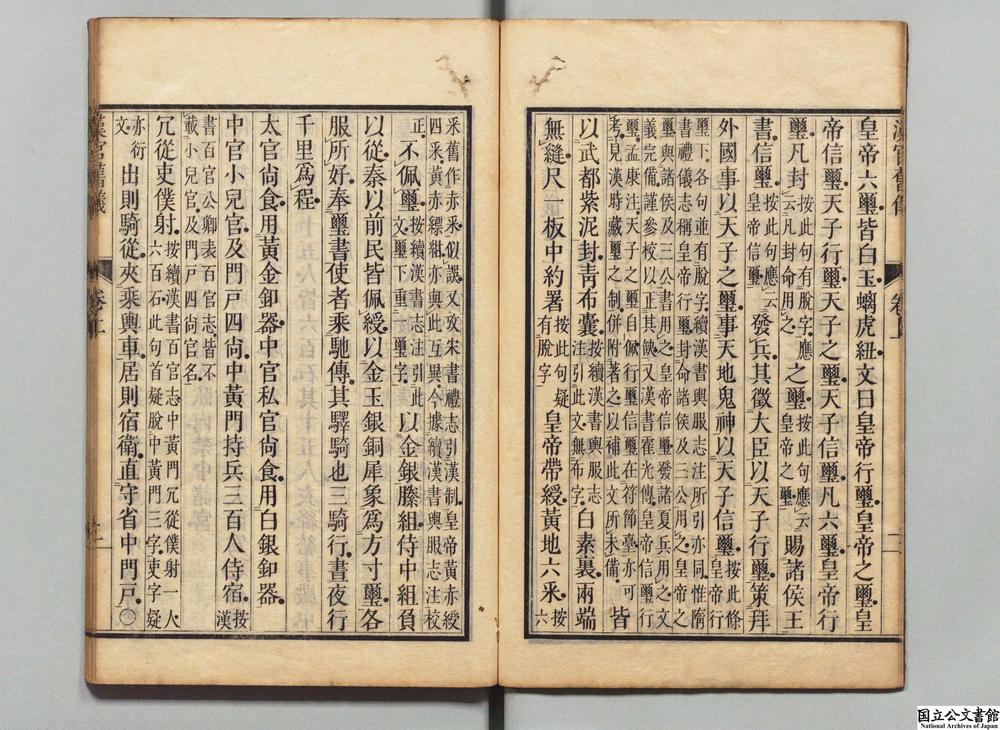 漢官舊儀
卷上
二
皇帝六璽皆白玉螭虎紐文曰皇帝行璽皇帝之璽皇
帝信璽天子行璽天子之璽天子信璽凡六璽皇帝行
璽凡封按此句有脫字應云凡封命用之之璽按此句應云皇帝之璽賜諸侯王
書信璽按此句應云皇帝信璽發兵其徵大臣以天子行璽策拜
外國事以天子之璽事天地鬼神以天子信璽按此條皇帝行
璽下各句並有脫字續漢書輿服志注所引亦同惟隋
書禮儀志稱皇帝行璽封命諸侯及三公用之皇帝之
璽與諸侯及三公書用之皇帝信璽發諸夏兵用之文
義完備謹參校以正其缺又漢書霍光傳皇帝信璽行
璽孟康注天子之璽自佩行璽信璽在符節臺亦可
考見漢時藏璽之制併附著之以補此文所未備皆
以武都紫泥封青布囊按續漢書輿服志注引此文無布字白素裏兩端
無縫尺一板中約署按此句疑有脫字皇帝帶綬黃地六采按六
采舊作赤釆似誤又攷宋書禮志引漢制皇帝黃赤綬
四釆黃赤縹紺亦與此互異今據續漢書輿服志注校
正不佩璽按續漢書志注引此文璽下重一璽字以金銀縢組侍中組負
以從秦以前民皆佩綬以金玉銀銅犀象為方寸璽各
服所好奉璽書使者乘馳傳其驛騎也三騎行晝夜行
千里為程
太官尚食用黃金釦器中官私官尚食用白銀釦器
中官小兒官及門戶四尚中黃門持兵三百人侍宿按漢
書百官公卿表百官志皆不
載小兒官及門戶四尚官名
冗從吏僕射按續漢書百官志中黃門冗從僕射一人六百石此句首疑脫中黃門三字吏字疑
亦衍文出則騎從夾乘輿車居則宿衛直守省中門戶
漢官舊儀
卷上
二
国立公文書館
National Archives of Japan